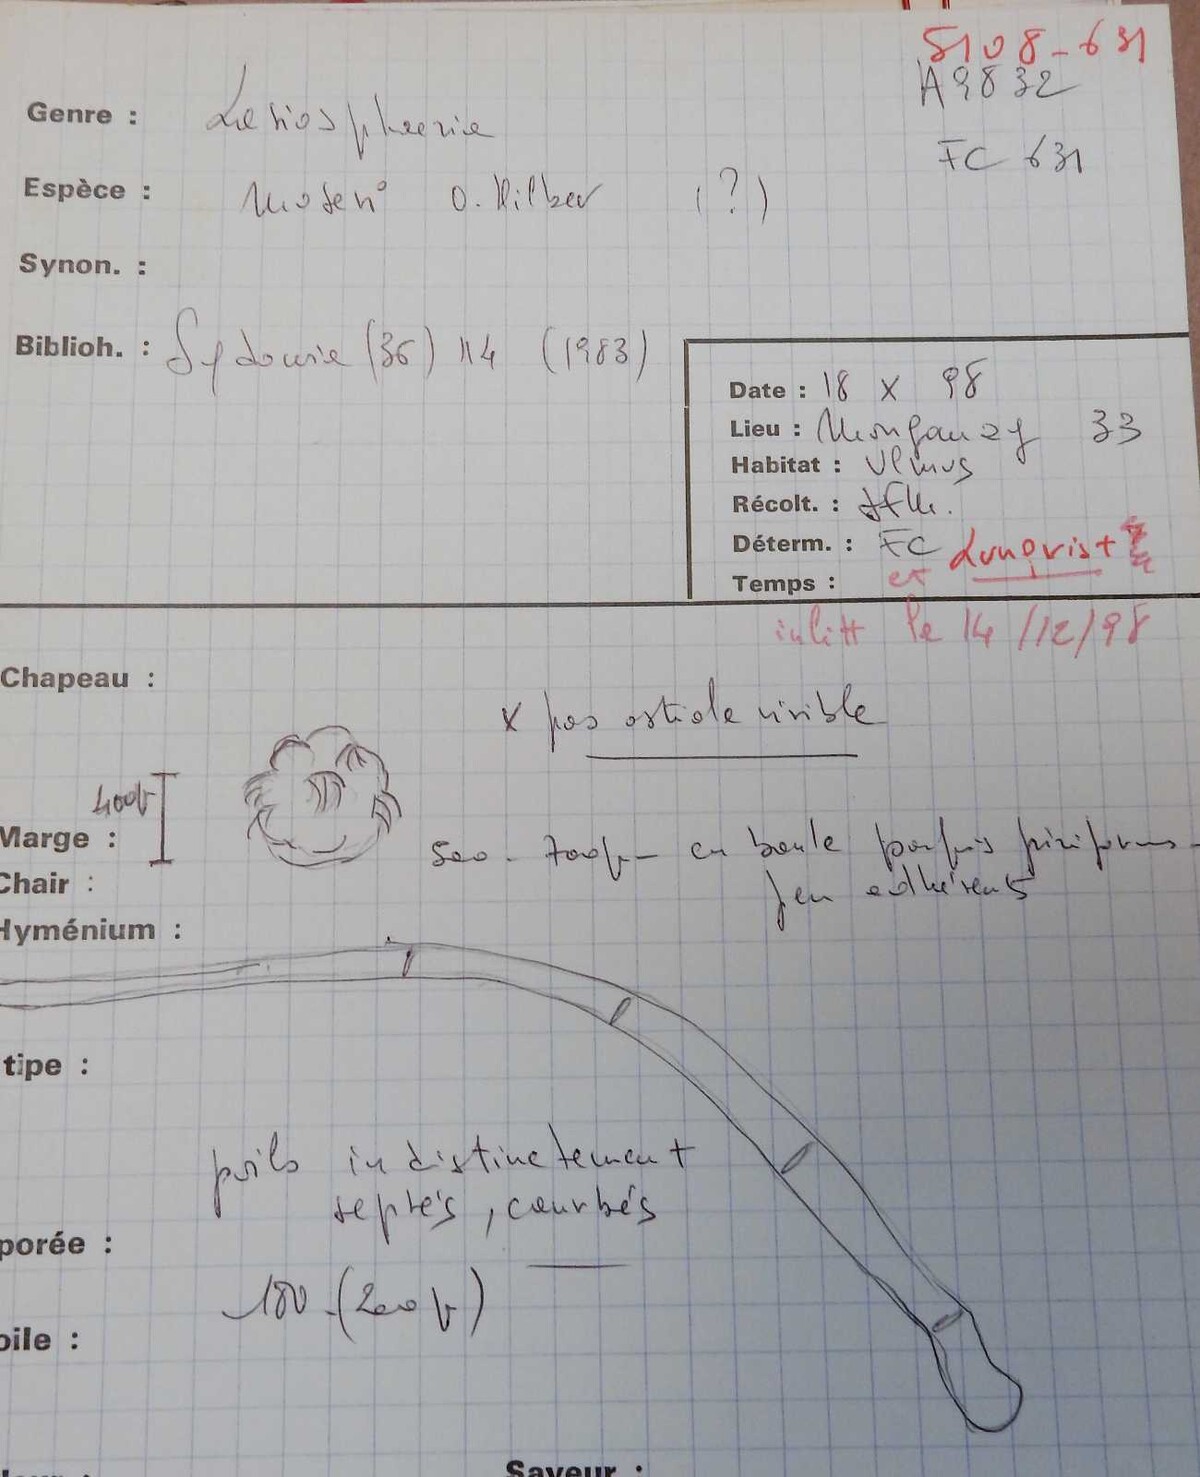 5108-631
A9832
Genre : Lasiosphaeria
FC 631
Espèce : Moseri O. Hilber (?)
Synon. :
Biblioh. : Sydowia (36) 114 (1983)
Date : 18 X 98
Lieu : Mongauzy 33
Habitat : Ulmus
Récolt. :
Déterm. : FC Lunqvist
Temps : et
in litt le 14/12/98
Chapeau :
x pas ostiole visible
400µ
Marge :
500-700µ en boule parfois piriformes
Chair :
peu adhérents
Hyménium :
tipe :
poils indistinctement
septés, courbés
porée :
180-(200µ)
oile :
Saveur :